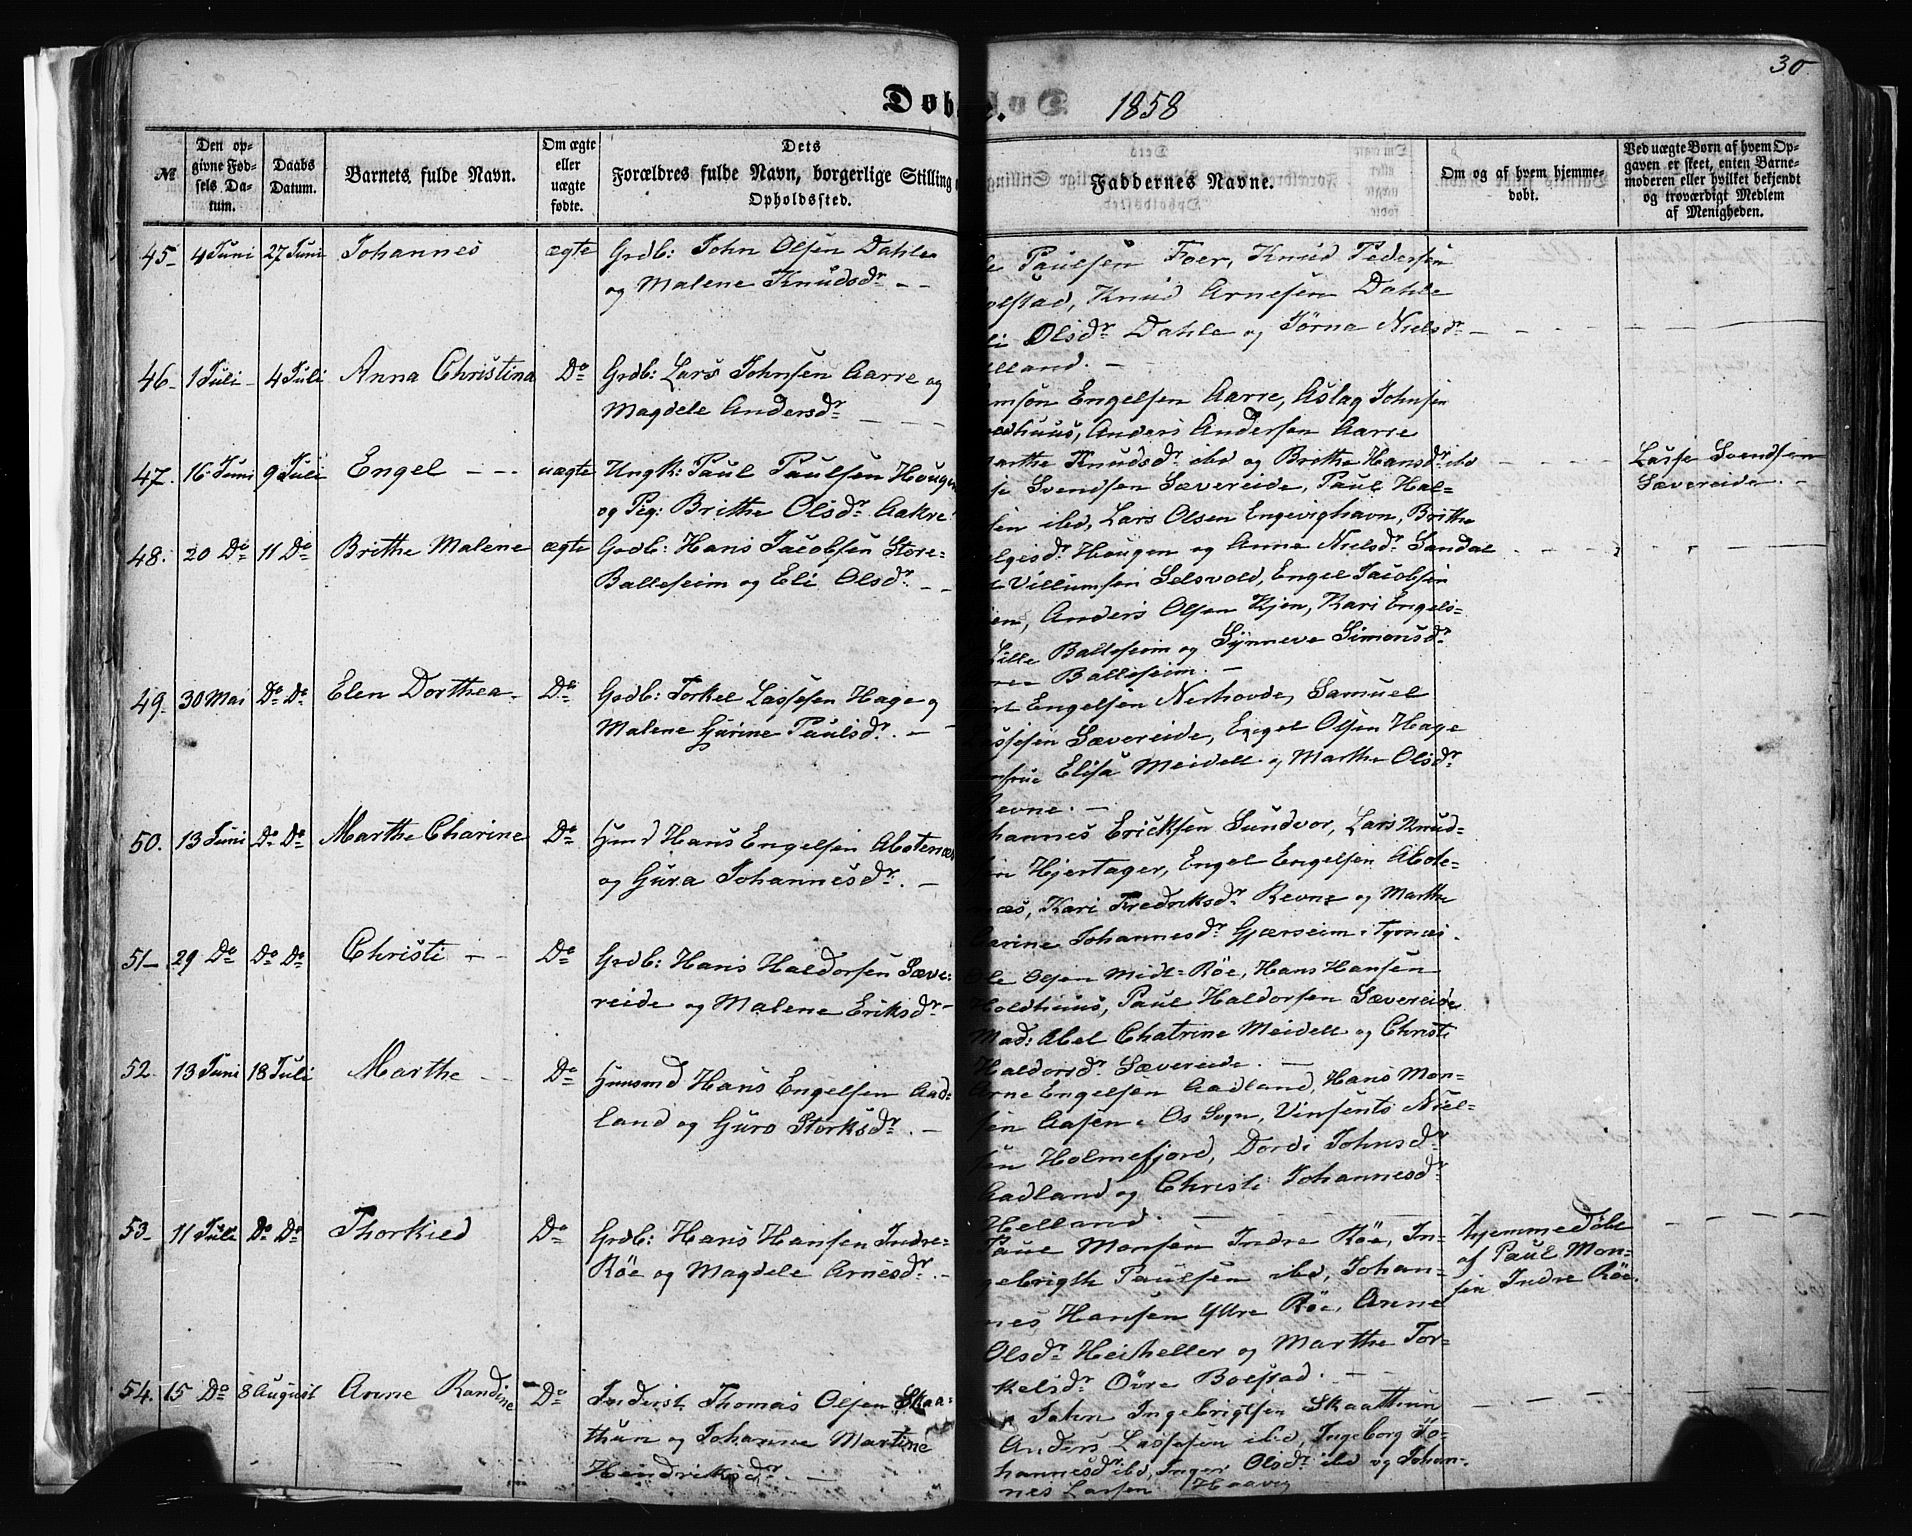 30
Døbte. 1858
№
Den op-
givne Fød-
sels Da-
tum.
Daabs
Datum.
Barnets fulde Navn.
Om ægte
eller
uægte
fødte.
Dets
Forældres fulde Navn, borgerlige Stilling
Opholdssted.
Faddernes Navne.
Om og af hvem hjemme-
døbt.
Ved uægte Børn af hvem Op-
gaven er skeet, enten Barne-
moderen eller hvilket bekjendt
og troværdigt Medlem
af Menigheden.
45- 4 Juni 27 Juni Johannes ægte Grdb: John Olsen Dahle
og Malene Knudsdr. - -
Paulsen Foer, Knud Pedersen
olstad, Knud Arnesen Dahle
Olsdr Dahle og Jörna Nielsdr
lland. -
46- 1 Juli- 4 Juli Anna Christina Do Grdb: Lars Johnsen Aarre og
Magdele Andersdr
mson Engelsen Aarre, Aslag Johnsen
odhuus, Anders Andersen Aarre
arthe Knudsdr ibd og Brithe Hansdr ibd
47. 16 Juni 9 Juli Engel - - - uægte Ungk: Paul Paulsen Hougen
og Pig: Brithe Olsdr Aakre
se Svendsen Sævereide, Paul Hal-
sen ibd, Lars Olsen Engevighavn, Brithe
elgisdr Hougen og Anna Nielsdr Sandal
Lasse Svendsen
Sævereide. -
48. 20 Do 11 Do Brithe Malene ægte Grdb: Hans Jacobsen Store-
Balleseim og Eli Olsdr. - -
Villumsen Selsvold, Engel Jacobsen
en, Anders Olsen Kjen, Kari Engels-
Lille Balleseim og Synneve Simonsdr
re Balleseim. -
49. 30 Mai Do Do Elen Dorthea - Do Grdb: Torkel Lassesen Hage og
Malene Gurine Paulsdr. - -
rt Engelsen Nerhovde, Samuel
Lassesen Sævereide, Engel Olsen Hage
Elisa Meidell og Marthe Olsdr
Revne. -
50. 13 Juni Do Do Marthe Charine Do Huusmd Hans Engelsen Abotenæs
og Gura Johannesdr. -
hannes Ericksen Sundvor, Lars Knud-
sen Hjertager, Engel Engelsen Abote-
næs, Kari Fredriksdr Revne og Marthe
Carine Johannesdr Gjerseim i Tysnæs.
51- 29 Do Do Do Christi - - Do Grdb: Hans Haldorsen Sæve-
reide og Malene Eriksdr -
Ole Olsen Midt-Röe, Hans Hansen
Holdhuus, Paul Haldorsen Sævereide
Mad: Abel Chatrine Meidell og Christi
Haldorsdr Sævereide. -
52. 13 Juni 18 Juli Marthe - Do Huusmd Hans Engelsen Aad-
land og Guro Storksdr. -
Arne Engelsen Aadland, Hans Mon-
sen Aasen i Os Sogn, Vinsents Niel-
sen Holmefjord, Dordi Johnsdr
Aadland og Christi Johannesdr
Helland.
53- 11 Juli Do Do Thorkild Do Grdb: Hans Hansen Indre-
Röe og Magdele Arnesdr. -
Paul Monsen Indre Röe, In-
gebrigth Paulsen ibd, Johan-
nes Hansen Yttre Röe, Anne
Olsdr Heiheller og Marthe Tor-
kelsdr Övre Bolstad. - -
hjemmedöbt
af Paul Mon-
sen Indre Röe.
54. 15 Do 8 August Anne Randine Do Inderst Thomas Olsen Skaa-
thun og Johanne Martine
Hendriksdr. -
John Ingebrigtsen Skaathun
Anders Lassesen ibd, Ingeborg Jo-
hannesdr ibd, Inger Olsdr ibd og Johan-
nes Larsen Haavig